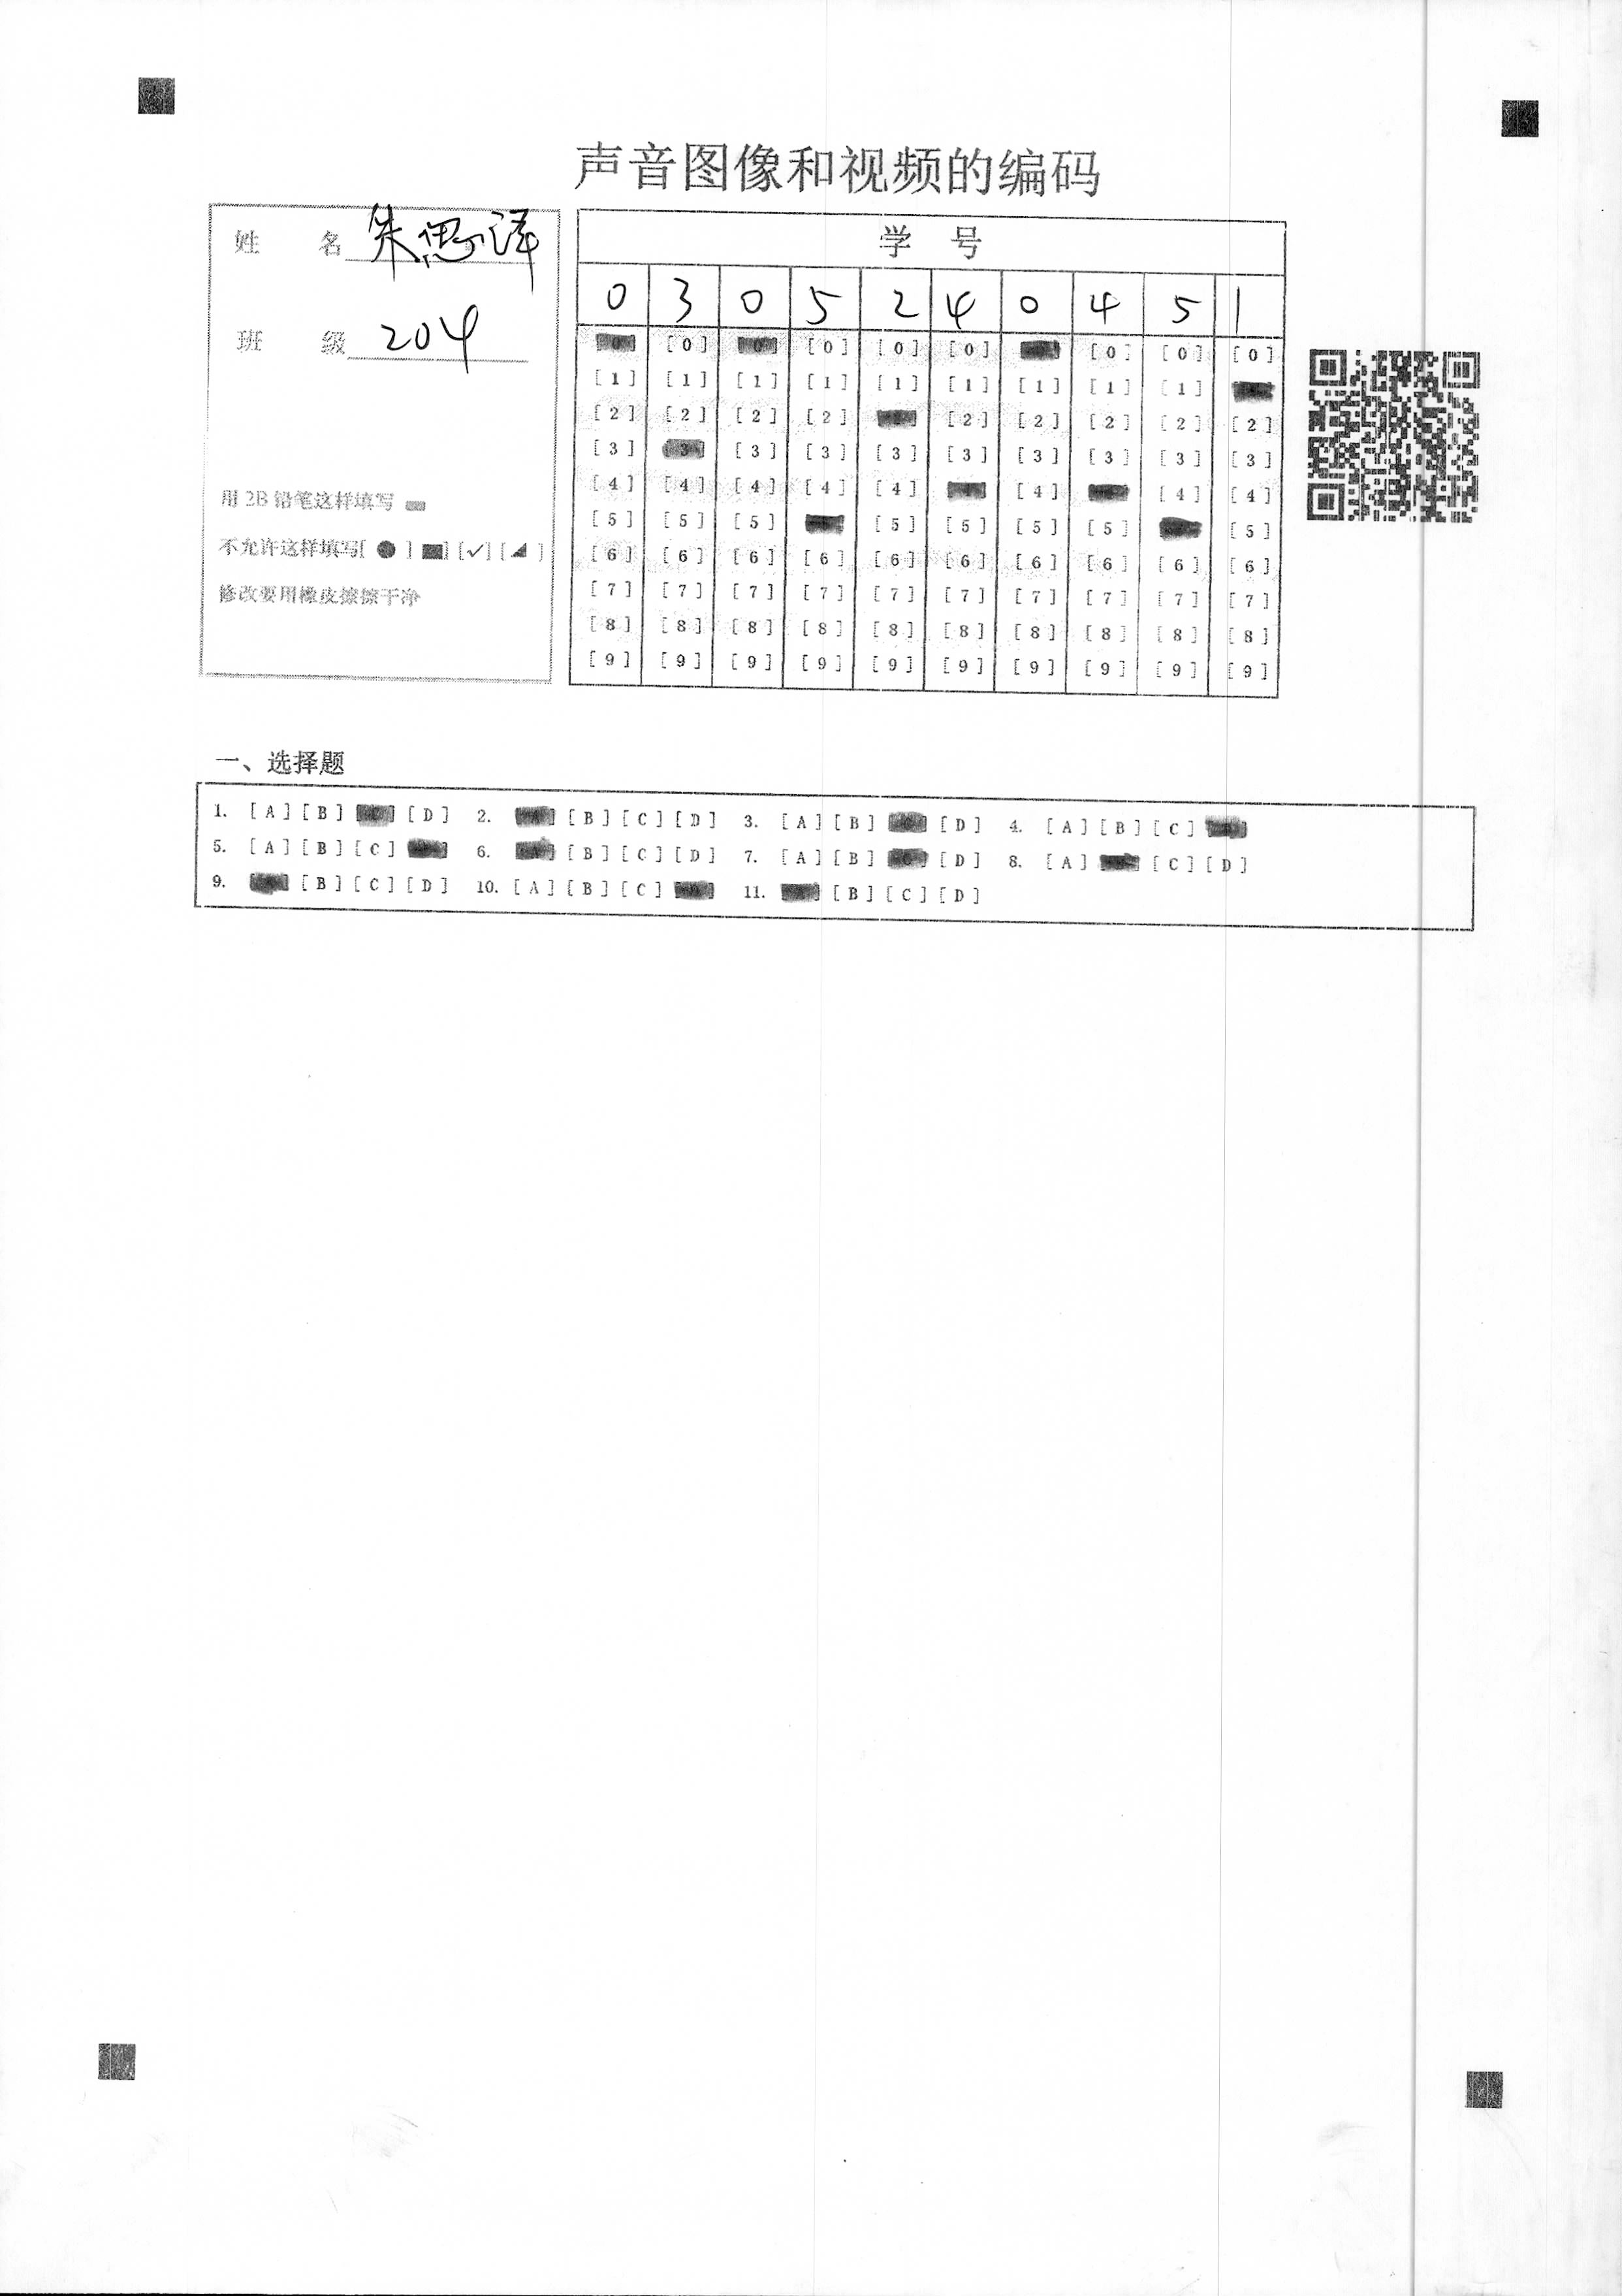 声音图像和视频的编码
姓 名 朱思泽
班 级 204
用 2B 铅笔这样填写
不允许这样填写[ ● ] [■] [✓] [◢ ]
修改要用橡皮擦擦干净
学 号
0 3 0 5 2 4 0 4 5 1
[0] [0] [0] [0] [0] [0] [0]
[1] [1] [1] [1] [1] [1] [1] [1] [1]
[2] [2] [2] [2] [2] [2] [2] [2] [2]
[3] [3] [3] [3] [3] [3] [3] [3] [3] [3]
[4] [4] [4] [4] [4] [4] [4] [4]
[5] [5] [5] [5] [5] [5] [5] [5]
[6] [6] [6] [6] [6] [6] [6] [6] [6] [6]
[7] [7] [7] [7] [7] [7] [7] [7] [7] [7]
[8] [8] [8] [8] [8] [8] [8] [8] [8] [8]
[9] [9] [9] [9] [9] [9] [9] [9] [9] [9]
一、选择题
1. [A] [B] [D] 2. [B] [C] [D] 3. [A] [B] [D] 4. [A] [B] [C]
5. [A] [B] [C] 6. [B] [C] [D] 7. [A] [B] [D] 8. [A] [C] [D]
9. [B] [C] [D] 10. [A] [B] [C] 11. [B] [C] [D]